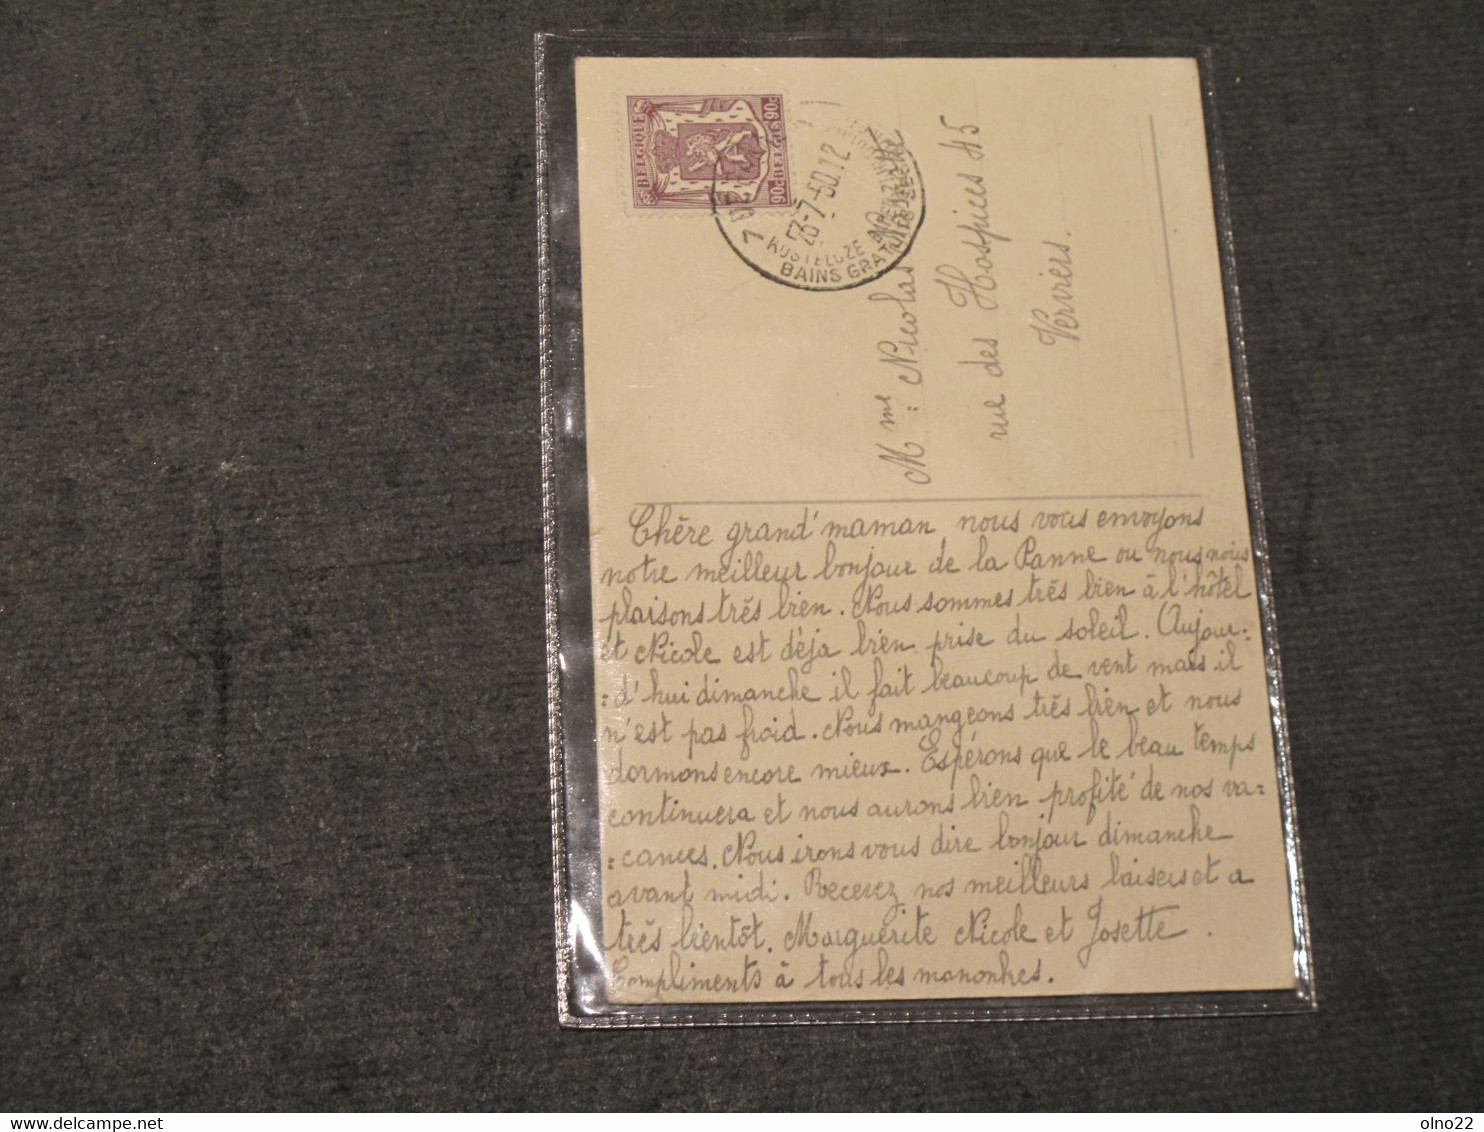 BELGIQUE
90c BELGIE 90c
23-7-50.12
KOSTELOZE
BAINS GRAT
Mme : Nicolas
rue des Hospices 45
Verviers.
Chère grand'maman, nous vous envoyons
notre meilleur bonjour de la Panne ou nous nous
plaisons très bien. Nous sommes très bien à l'hôtel
et Nicole est déja bien prise du soleil. Aujour=
=d'hui dimanche il fait beaucoup de vent mais il
n'est pas froid. Nous mangeons très bien et nous
dormons encore mieux. Espérons que le beau temps
continuera et nous aurons bien profité de nos va=
=cances. Nous irons vous dire bonjour dimanche
avant midi. Recevez nos meilleurs baisers et a
très bientôt. Marguerite Nicole et Josette.
Compliments à tous les mononkes.
olno22